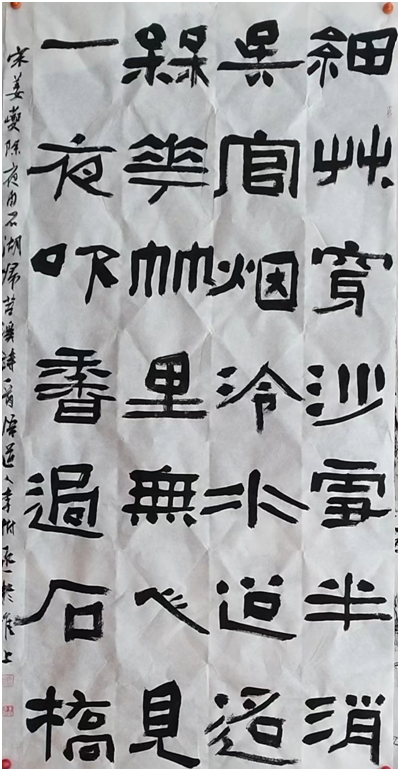 細艸穿沙雪半消
吳宮烟冷水迢迢
槑華竹里無人見
一夜吹香過石橋
宋姜夔除夜自石湖歸苕溪詩一首悟道人李